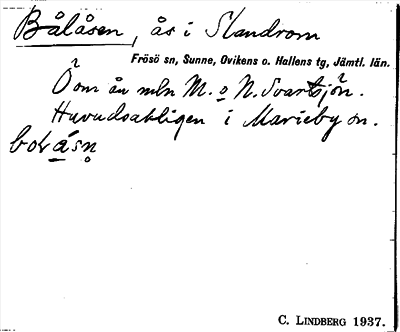 Bålåsen, ås i Slandrom
Frösö sn, Sunne, Ovikens o. Hallens tg, Jämtl. län.
Ö om ån mln M. o N. Svartsjön.
Huvudsakligen i Marieby sn.
C. LINDBERG 1937.